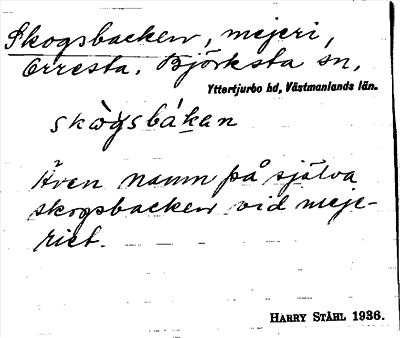 Skogsbacken, mejeri,
Orresta, Björksta sn,
Yttertjurbo hd, Västmanlands län.
skògsbákan
Även namn på själva
skogsbacken vid meje-
riet.
HARRY STÅHL 1936.